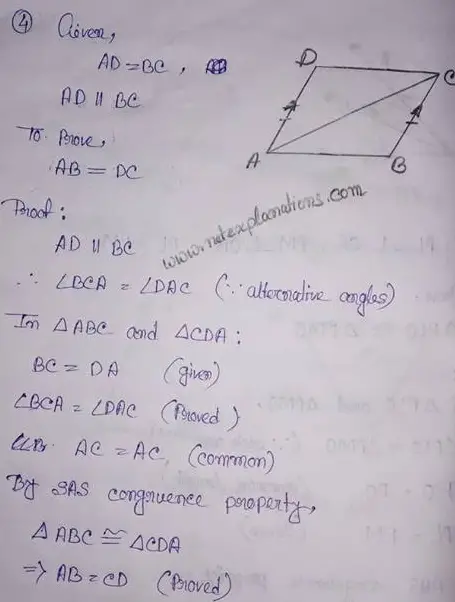 ④ Given,
AD = BC,
AD || BC
To Prove,
AB = DC
Proof:
AD || BC
∴ ∠BCA = ∠DAC (∵ alternative angles)
In △ABC and △CDA:
BC = DA (given)
∠BCA = ∠DAC (Proved)
AC = AC, (common)
By SAS congruence property,
△ABC ≅ △CDA
⇒ AB = CD (Proved)
D
C
A
B